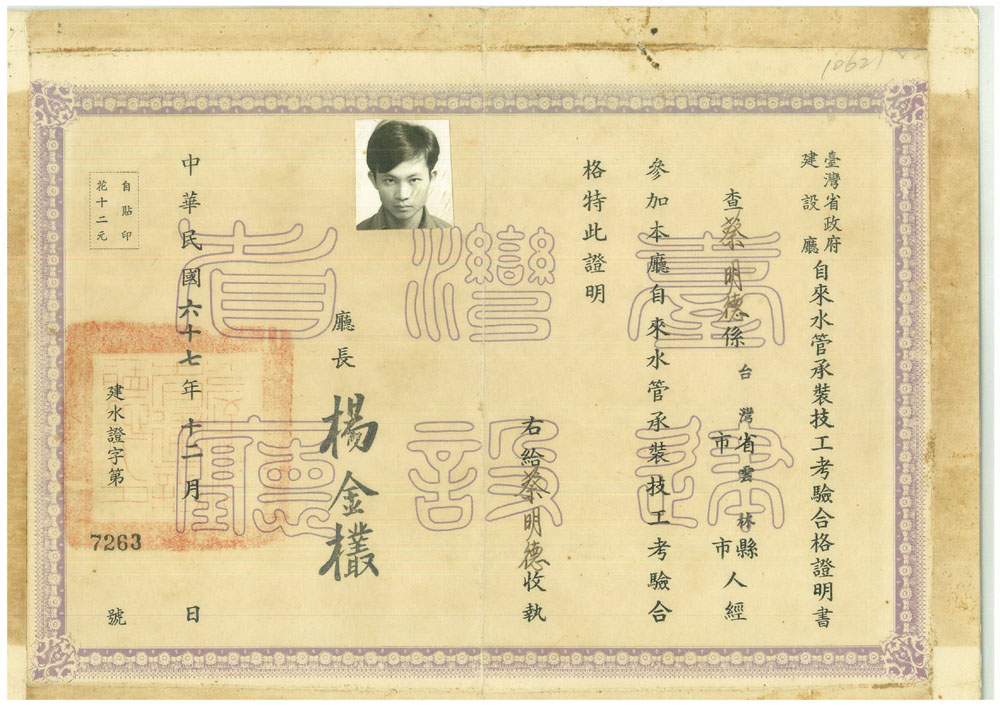 臺灣省政府建設廳自來水管承裝技工考驗合格證明書
查蔡明德係台灣省市雲林縣市人經
參加本廳自來水管承裝技工考驗合
格特此證明
右給蔡明德收執
廳長 楊金欉
中華民國六十七年十二月 日
建水證字第7263號
自貼印
花十二元
臺灣省
建設廳
10621